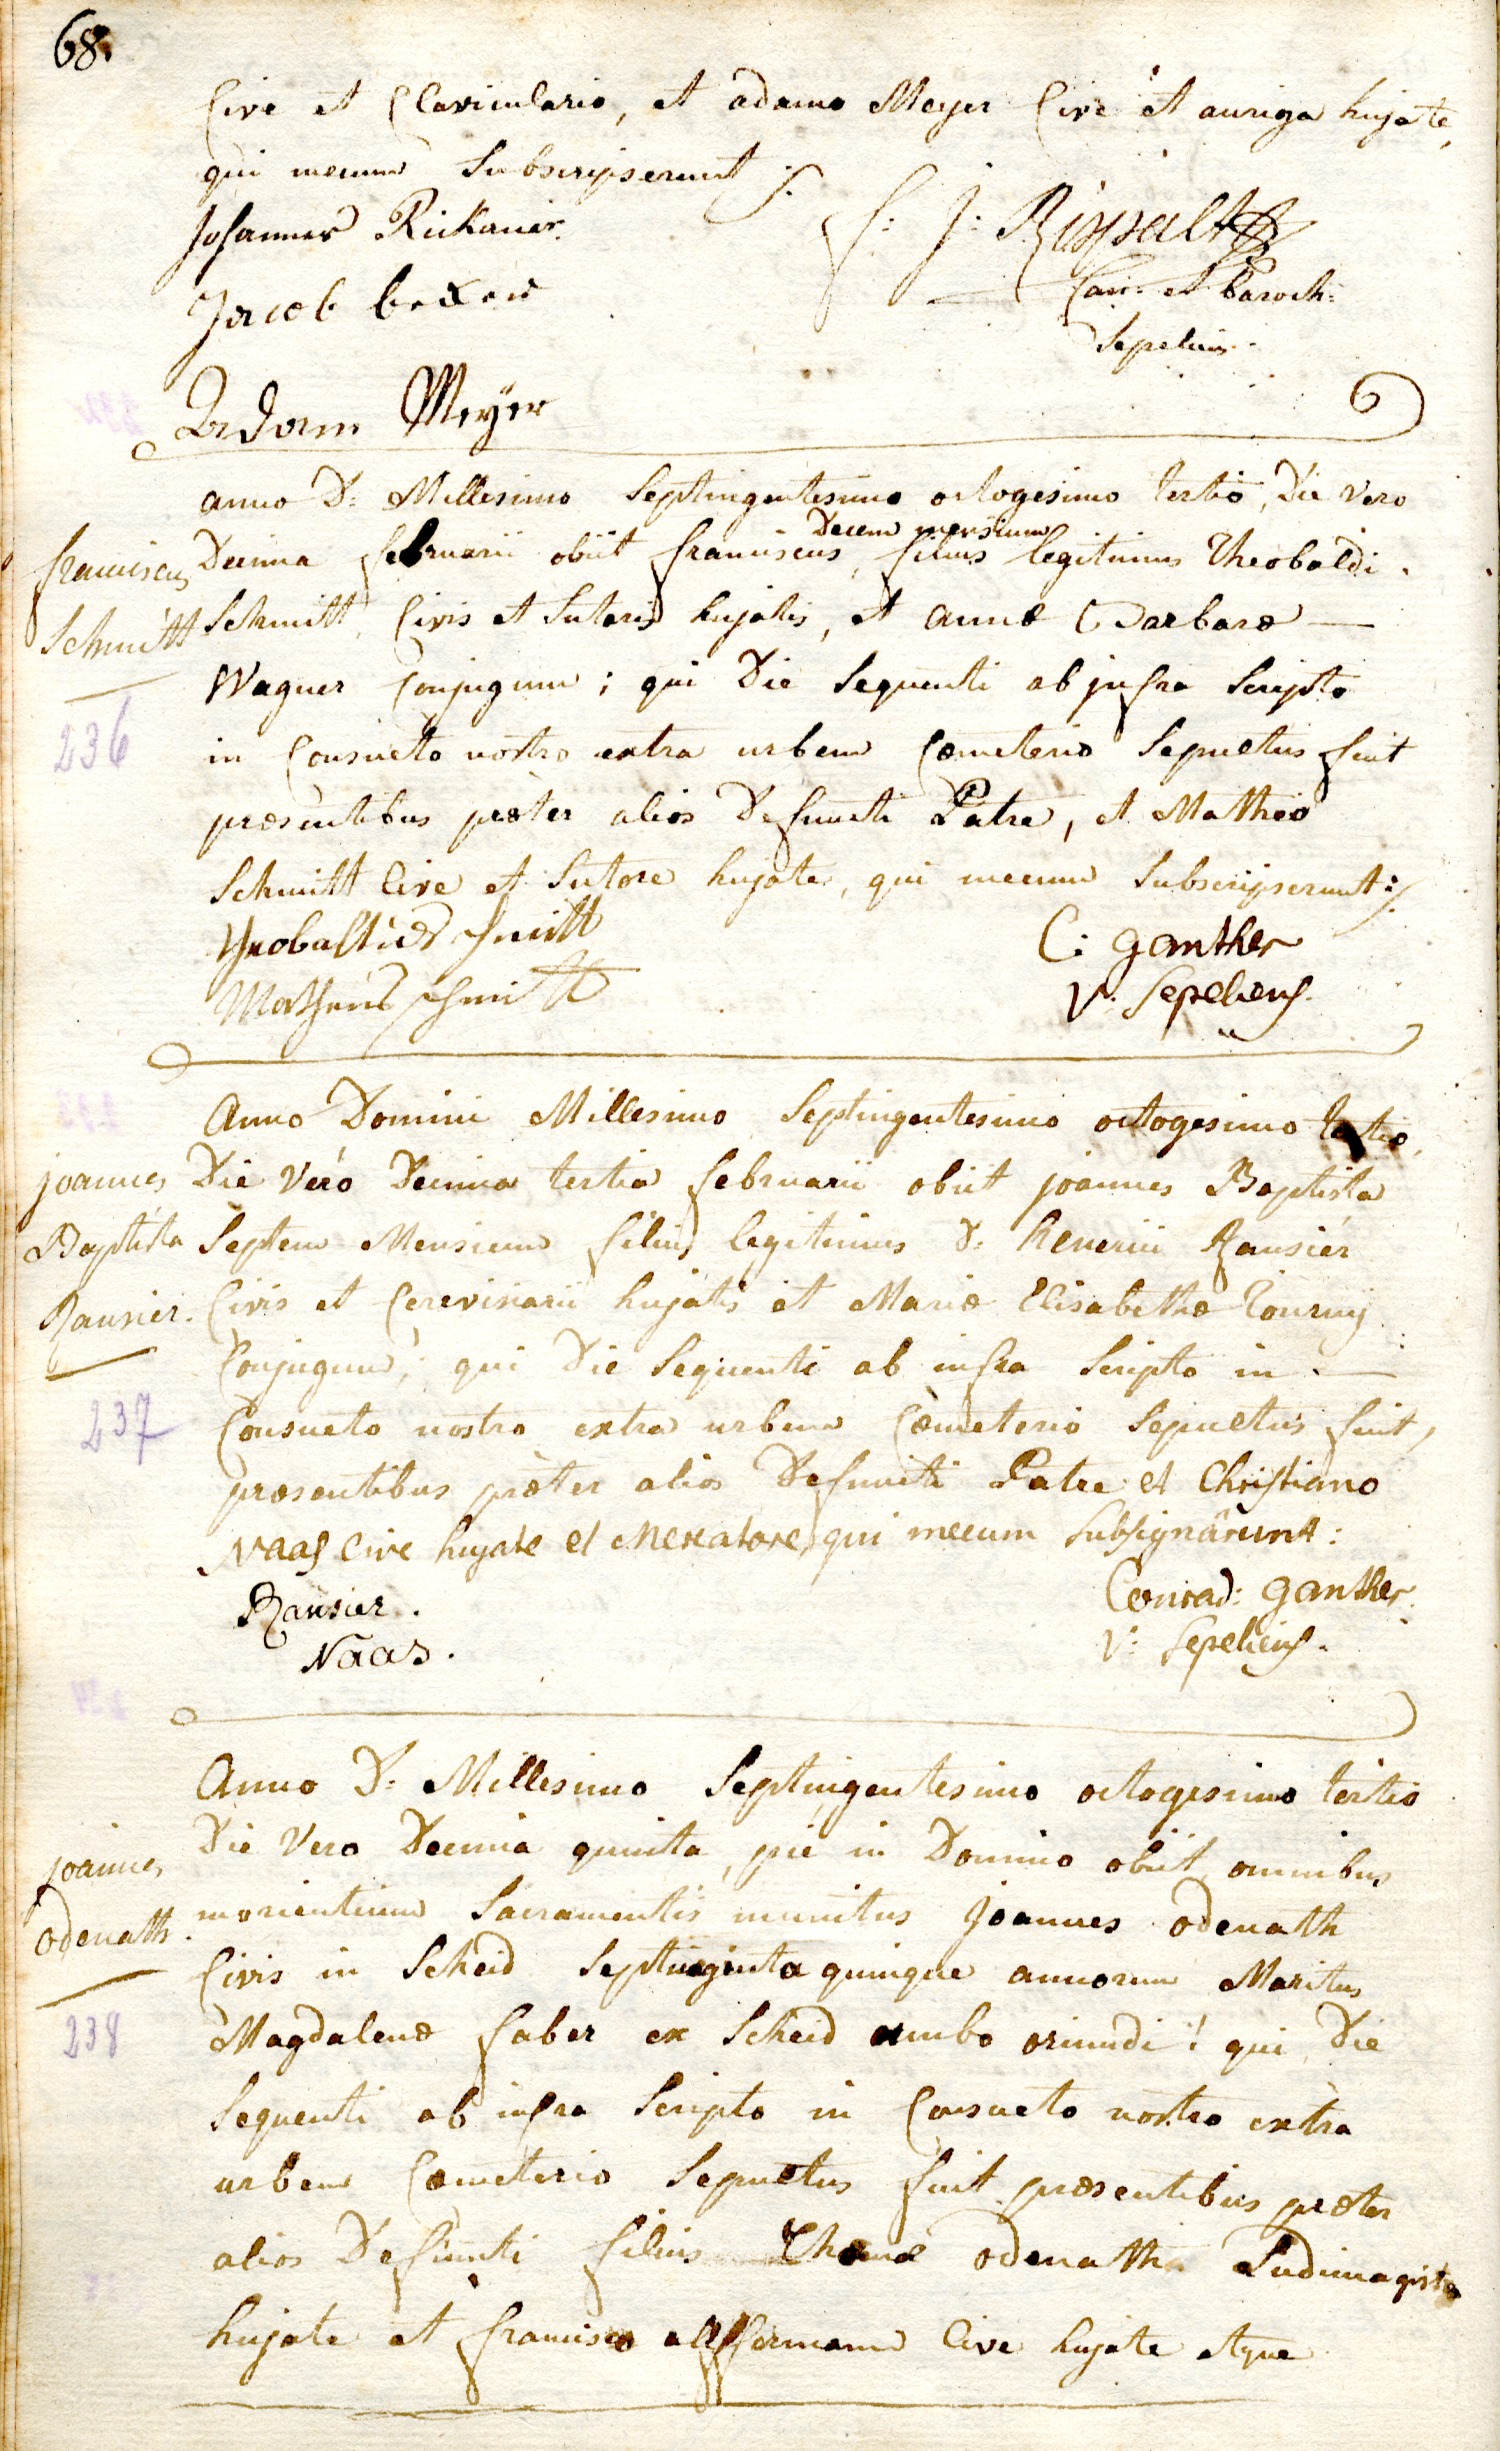 68.
Cive et Claviculario, et adamo Meyer Cive et auriga hujate,
qui mecum Subscripserunt ;.
Johannes
F: J: Rigsalt
Can: et Paroch:
Jacob bexer
Sepeliens
Adam Meyer
anno D: Millesimo Septingentesimo octogesimo tertio, Die vero
Decem mensium
Decima februarii obiit franciscus, filius legitimus Theobaldi
franciscus
Schmitt
Schmitt, Civis et Sutoris hujatis, et annæ Barbaræ —
Wagner Conjugum ; qui Die Sequenti ab jnfra Scripto
236
in Consueto nostro extra urbem Cæmeterio Sepultus fuit
præsentibus præter alios Defuncti Patre, et Mathæo
Schmitt Cive et Sutore hujate, qui mecum Subscripserunt :/.
Theobaltus schmitt
C: ganther
Matheus schmitt
V. Sepeliens.
Anno Domini Millesimo Septingentesimo octogesimo tertio,
joannes
Baptista
Rausier.
Die Vero Decima tertia februarii obiit joannes Baptista
Septem Mensium filius legitimus D: Reverin Rausier
Civis et Cerevisiarii hujatis et Mariæ Elisabethæ Tourny
Conjugum ; qui Die Sequenti ab infra Scripto in —
237
Consueto nostro extra urbem Cæmeterio Sepultus fuit,
præsentibus præter alios Defuncti Patre et Christiano
Naas Cive hujate et Mercatore, qui mecum Subsignârunt :
Rausier .
Conrad: ganther
Naas .
V: Sepeliens.
Anno D: Millesimo Septingentesimo octogesimo tertio
Die Vero Decima quinta, pie in Domino obiit omnibus
joannes
odenath.
morientium Sacramentis munitus Joannes odenath
Civis in Scheid Septuaginta quinque annorum Maritus
238
Magdalenæ faber ex Scheid ambo oriundi ; qui Die
Sequenti ab infra Scripto in Consueto nostro extra
urbem Cæmeterio Sepultus fuit præsentibus præter
alios Defuncti filius Thoma odenath Ludimagistro
hujate et francisco Cive hujate atque